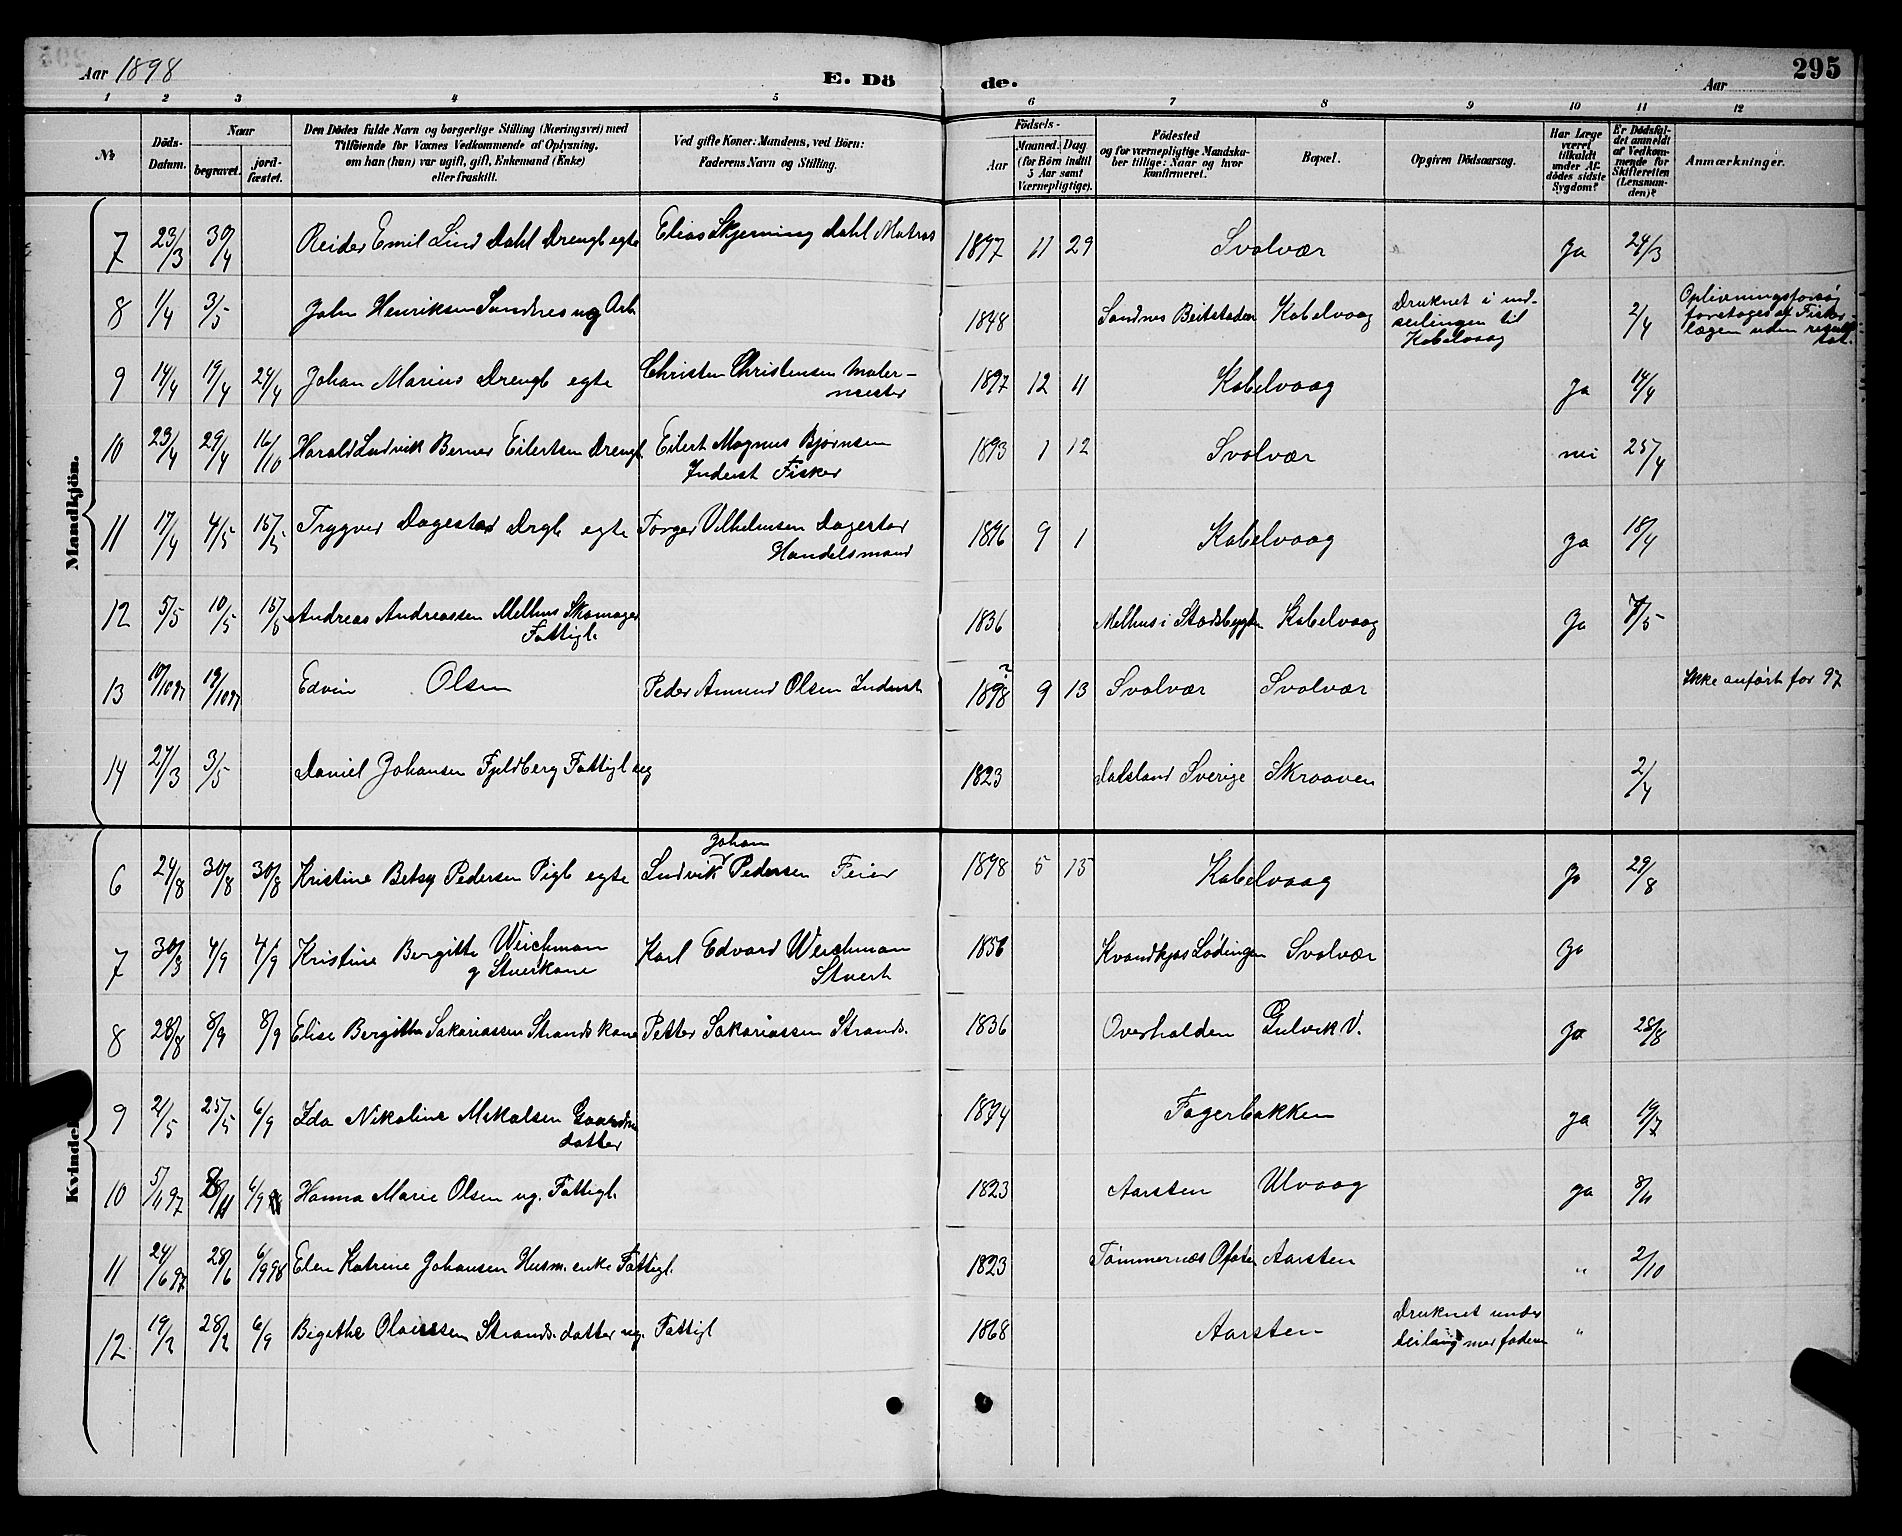 Aar 1898
E. Dö
de.
Aar
295
1 2 3 4 5 6 7 8 9 10 11 12
№
Döds-
Datum.
Naar
begravet.
jord-
fæstet.
Den Dödes fulde Navn og borgerlige Stilling (Næringsvei) med
Tilföiende for Voxnes Vedkommende af Oplysning,
om han (hun) var ugift, gift, Enkemand (Enke)
eller fraskilt.
Ved gifte Koner: Mandens, ved Börn:
Faderens Navn og Stilling.
Födsels-
Aar
Maaned. Dag
(for Börn indtil
5 Aar samt
Værnepligtige).
Födested
og for værnepligtige Mandska-
ber tillige: Naar og hvor
konfirmeret.
Bopæl.
Opgiven Dödsaarsag.
Har Læge
været
tilkaldt
under Af-
dödes sidste
Sygdom?
Er Dödsfal-
det anmeldt
af Vedkom-
mende for
Skifteretten
(Lensman-
den)?
Anmærkninger.
Mandkjön.
7 23/3 30/4 Reider Emil Lind Dahl Drengb egte Elias Skjerning Dahl Matros 1897 11 29 Svolvær Ja 24/3
8 1/4 3/5 John Henriksen Sandnes ug Arb 1848 Sandnes Beitstaden Kabelvaag Druknet i ind-
seilingen til
Kabelvaag 2/4 Oplivningsforsøg
foretoges af Fisker-
lægen uden resul-
tat.
9 14/4 19/4 24/4 Johan Marius Drengb egte Christen Christensen Maler-
mester 1897 12 11 Kabelvaag Ja 14/4
10 23/4 29/4 16/10 Harald Ludvik Berner Eilertsen Drengb Eilert Magnus Bjørnsen
Inderst Fisker 1893 1 12 Svolvær nei 25/4
11 17/4 4/5 15/5 Trygver Dagestad Drgb egte Torger Vilhelmsen Dagestad
Handelsmand 1896 9 1 Kabelvaag Ja 18/4
12 5/5 10/5 15/5 Andreas Andreassen Melhus Skomager
Fattigl. 1836 Melhus i Stadsbygden Kabelvaag Ja 7/5
13 10/10 97 19/10 97 Edvin Olsen Peder Amund Olsen Inderst ? 1898 9 13 Svolvær Svolvær Ikke anført for 97
14 27/3 3/5 Daniel Johansen Fjeldberg Fattigl ug 1823 Dalsland Sverige Skraaven 2/4
Kvindekjön.
6 24/8 30/8 30/8 Kristine Betsy Pedersen Pigb egte Ludvik Johan Pedersen Feier 1898 5 15 Kabelvaag Ja 29/8
7 30/8 4/9 4/9 Kristine Bergitte Weichman
g Stuerkone Karl Edvard Weichman
Stuert 1856 Kvandkjos Lødingen Svolvær Ja
8 28/8 8/9 8/9 Elise Bergitha Sakariassen Strandskone Petter Sakariassen Strands. 1836 Overhalden Gulvik V. Ja 28/8
9 21/5 25/5 6/9 Ida Nikoline Mikalsen Gaardm
datter 1874 Fagerbakken Ja 19/7
10 5/11 97 8/11 6/9 Hanna Marie Olsen ug. Fattigl. 1823 Aarsten Ulvaag Ja 8/11
11 24/6 97 28/6 6/9 98 Elen Katrine Johansen Husm. enke Fattigl. 1823 Tømmernæs Ofoten Aarsten " 2/10
12 19/2 28/2 6/9 Bigethe Olaissen Strands. datter ug. Fattigl 1868 Aarsten Druknet under
seilaug med faderen "